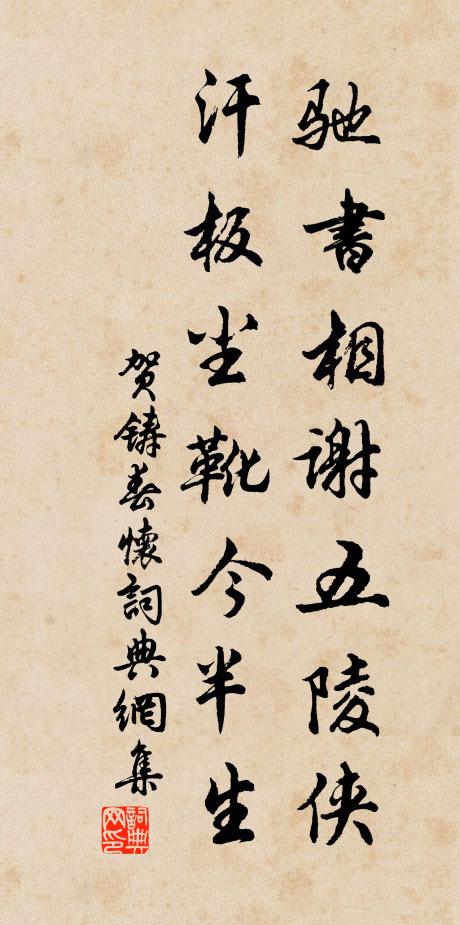 驰書相謝五陵俠
汗板尘靴今半生
贺鑄春懷詞典網集
詞典网印